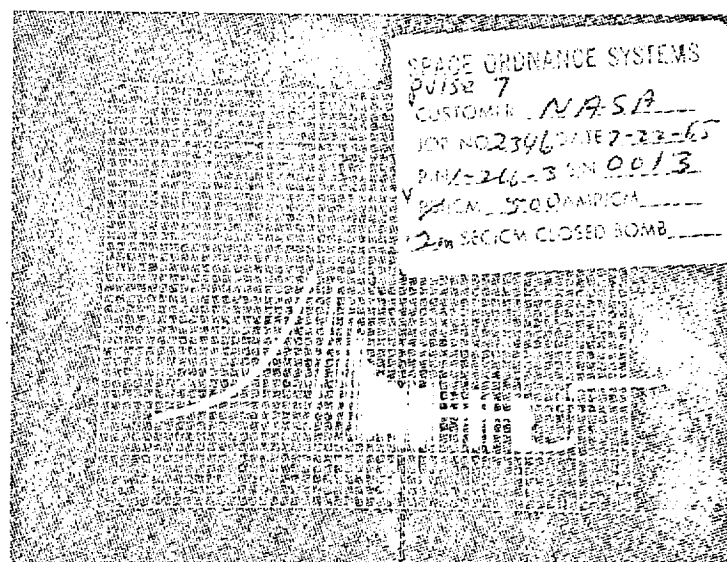 SPACE ORDNANCE SYSTEMS
PULSE 7
CUSTOMER NASA
JOB NO 2346 DATE 7-23-65
P/N 1-266-3 S/N 0013
V /CM 500 AMP/CM
2m SEC/CM CLOSED BOMB